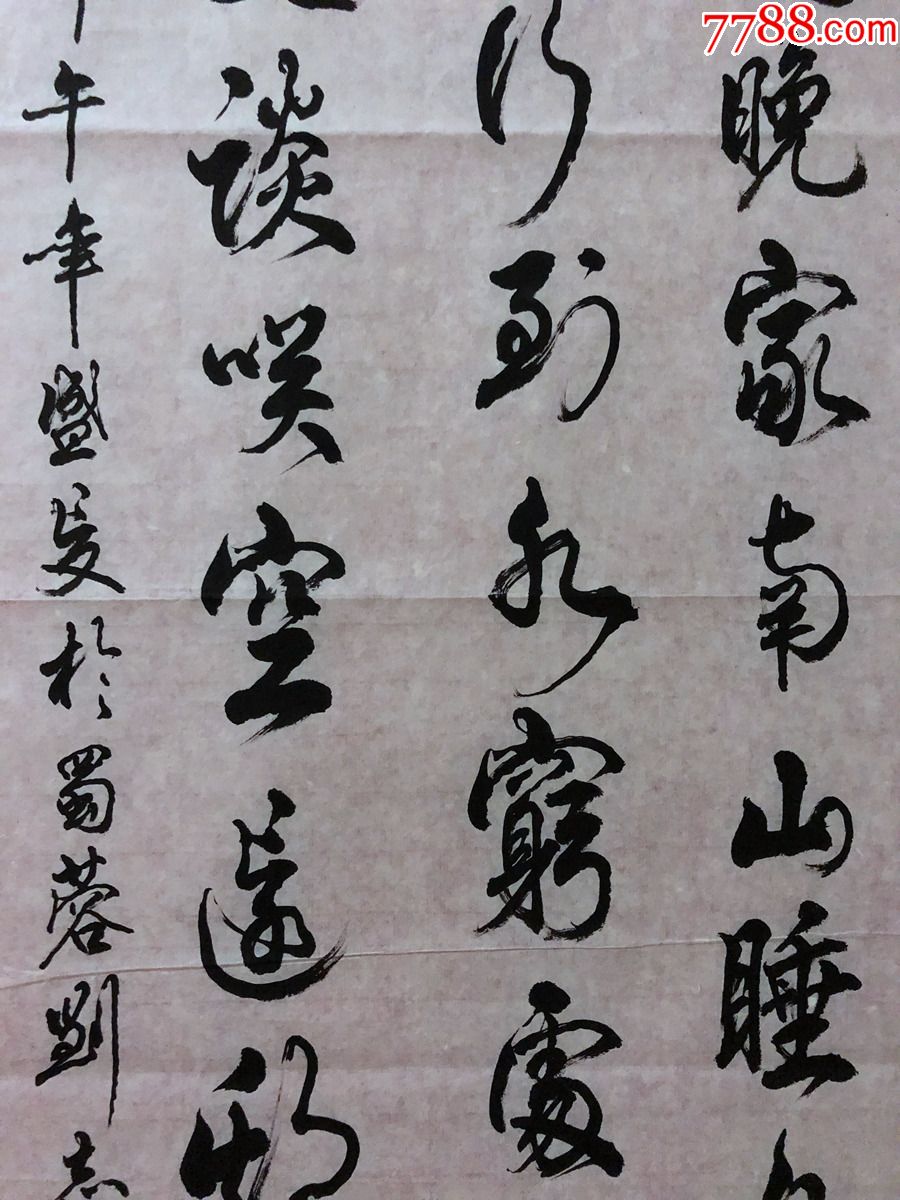 7788.com
晚家南山睡
行到水窮處
談咲空還
午年盛夏於蜀蓉劉志